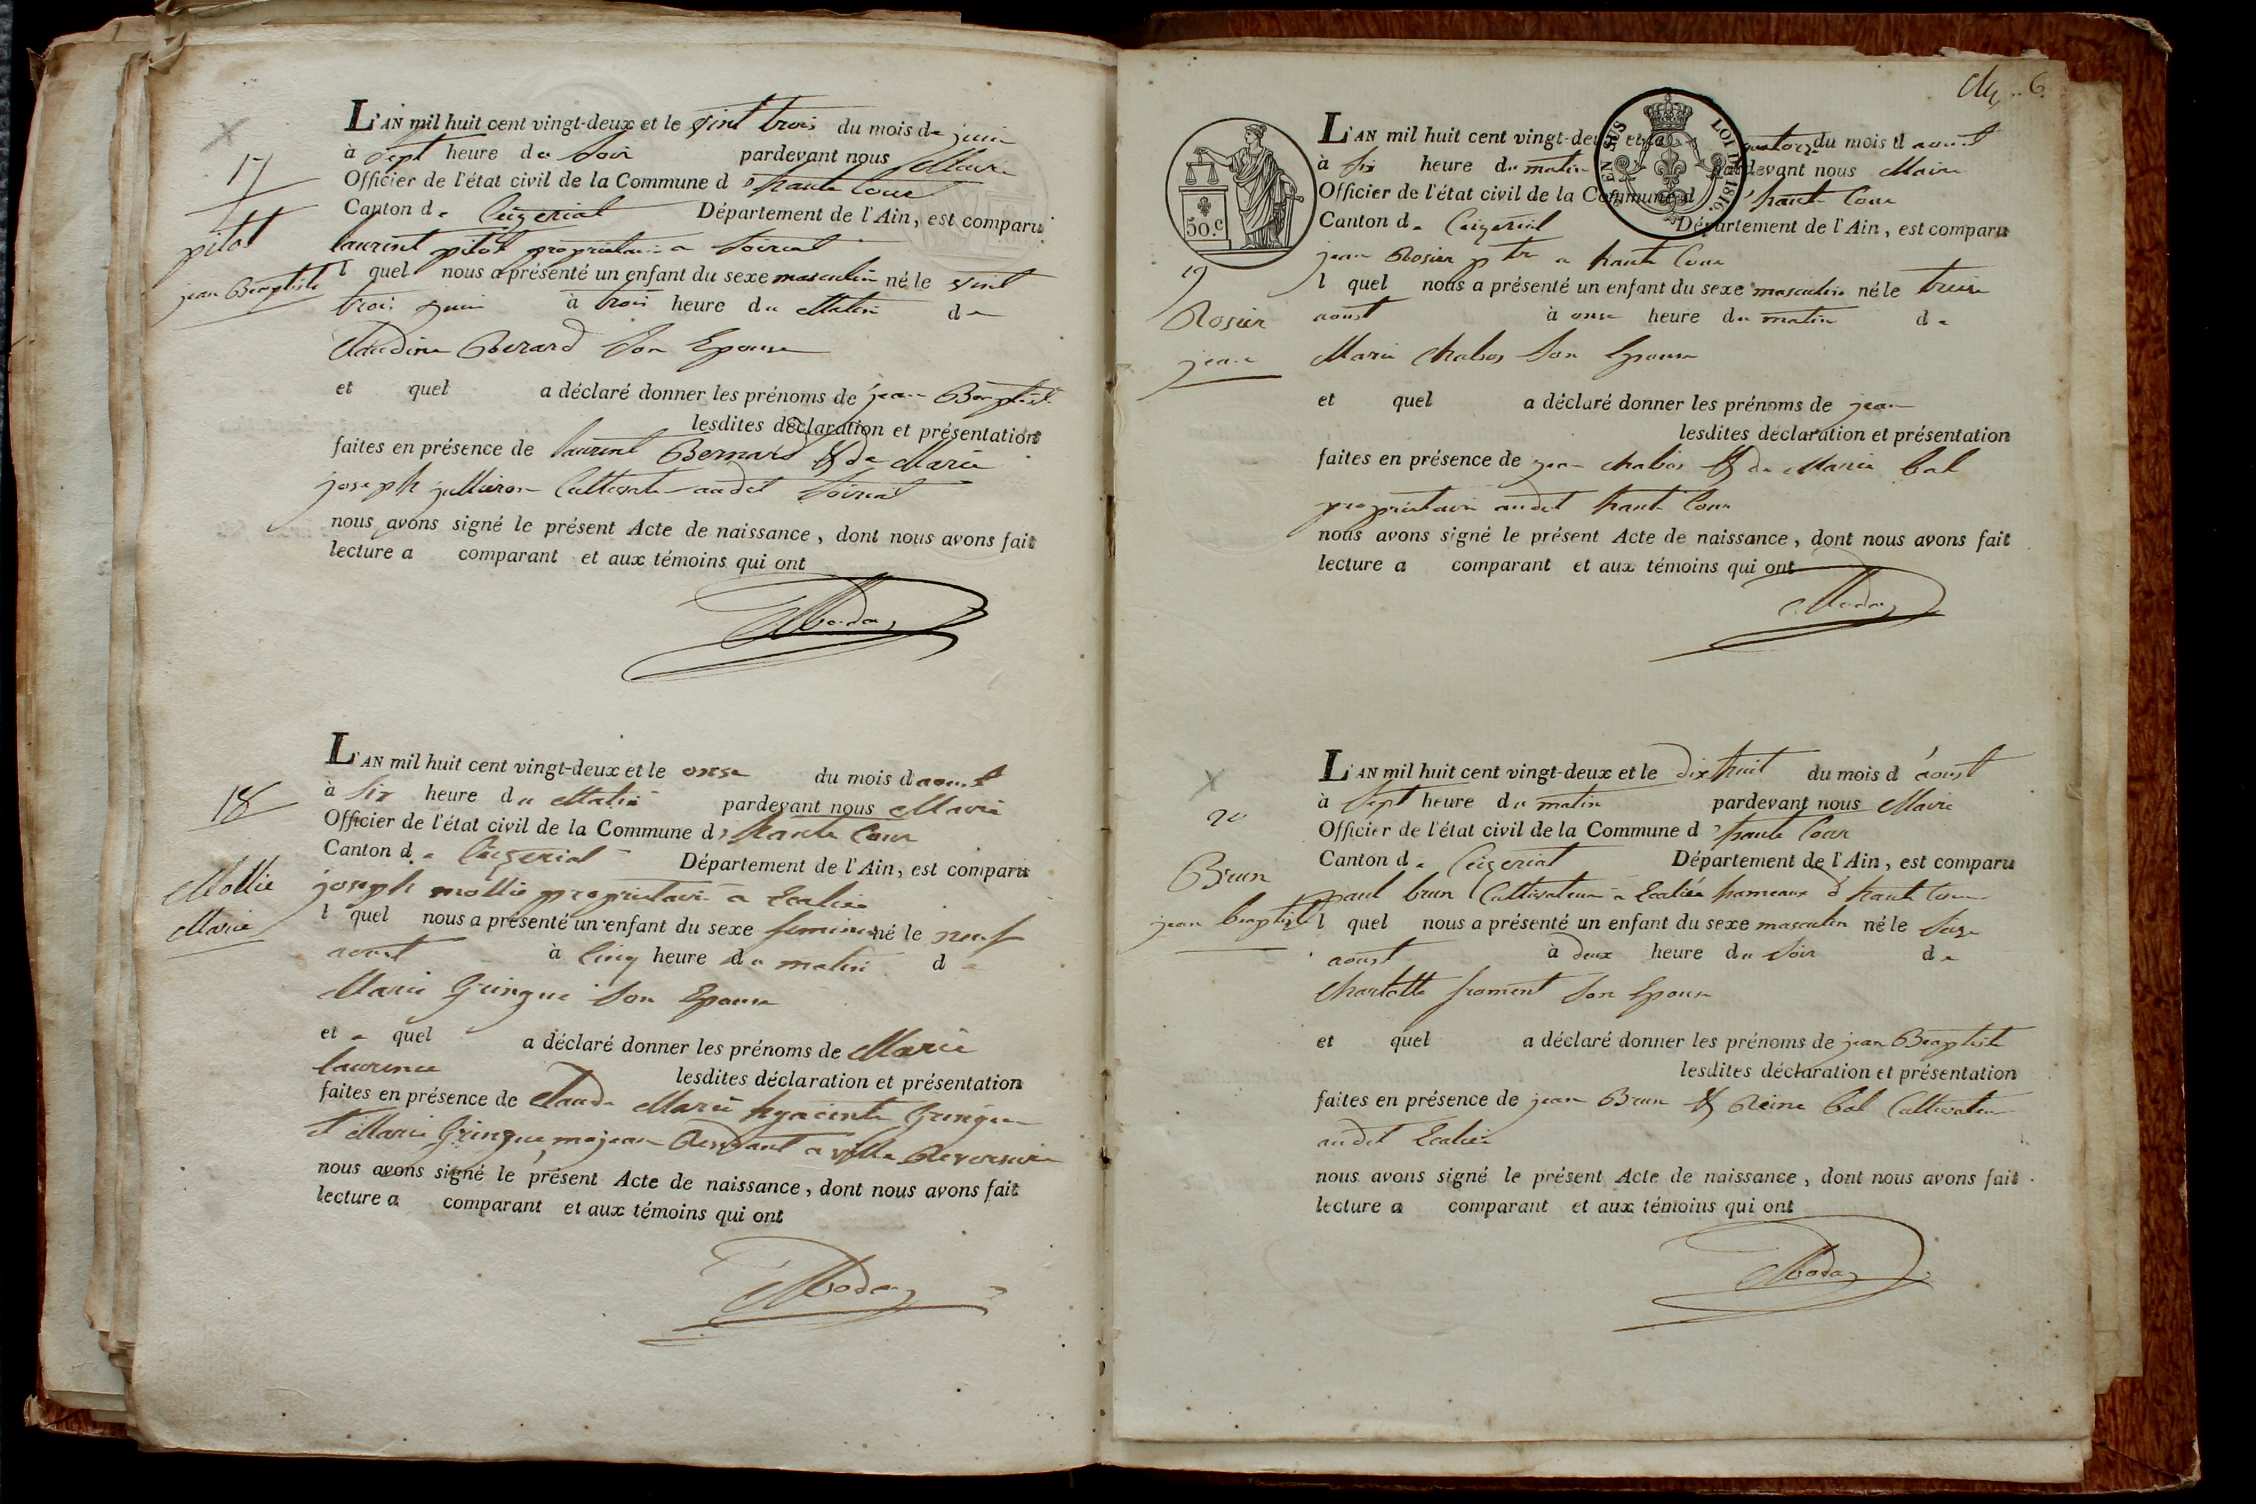 17
pitot
jean Baptiste
L'AN mil huit cent vingt-deux et le vint trois du mois de juin
à sept heure du Soir pardevant nous Maire
Officier de l'état civil de la Commune d'haute Cour
Canton de Ceizeriat Département de l'Ain, est comparu
laurent pitot propriétaire a Soiriat
l quel nous a présenté un enfant du sexe masculin né le vint
trois juin à trois heure du Matin de
Claudine Berard Son Epouse
et quel a déclaré donner les prénoms de jean Baptiste
lesdites déclaration et présentation
faites en présence de laurent Bernard & de Marie
joseph jullieron Cultivater audit Soiriat
nous avons signé le présent Acte de naissance, dont nous avons fait
lecture a comparant et aux témoins qui ont
18
Mollie
Marie
L'AN mil huit cent vingt-deux et le onse du mois d aoust
à Six heure du Matin pardevant nous Maire
Officier de l'état civil de la Commune d'haute Cour
Canton de Ceizeriat Département de l'Ain, est comparu
joseph mollie propriétaire a Ecalier
l quel nous a présenté un enfant du sexe feminin né le neuf
aoust à Cinq heure du matin de
Marie Gringue Son Epouse
et quel a déclaré donner les prénoms de Marie
laurence
lesdites déclaration et présentation
faites en présence de Claude Marie hyacinte Gringue
et Marie Gringue majeur Residant a Ville Reversure
nous avons signé le présent Acte de naissance, dont nous avons fait
lecture a comparant et aux témoins qui ont
6
50.c
EN SUS
LOI DE 1816.
19
Rosier
jean
L'AN mil huit cent vingt-deux et le quatorze du mois d aoust
à Six heure du matin pardevant nous Maire
Officier de l'état civil de la Commune d'haute Cour
Canton de Ceizeriat Département de l'Ain, est comparu
jean Rosier ptre a haute Cour
l quel nous a présenté un enfant du sexe masculin né le treise
aoust à onse heure du matin de
Marie Chabos Son Epouse
et quel a déclaré donner les prénoms de jean
lesdites déclaration et présentation
faites en présence de jean Chabos & de Marie bal
propriétaire audit haute Cour
nous avons signé le présent Acte de naissance, dont nous avons fait
lecture a comparant et aux témoins qui ont
20
Brun
jean baptiste
L'AN mil huit cent vingt-deux et le dix huit du mois d'aoust
à Sept heure du matin pardevant nous Maire
Officier de l'état civil de la Commune d'haute Cour
Canton de Ceizeriat Département de l'Ain, est comparu
paul brun Cultivateur a Ecalier hameaux d'haute Cour
l quel nous a présenté un enfant du sexe masculin né le Seize
aoust à deux heure du Soir de
Charlotte froment Son Epouse
et quel a déclaré donner les prénoms de jean Baptiste
lesdites déclaration et présentation
faites en présence de jean Brun & Reine bal Cultivateur
audit Ecalier
nous avons signé le présent Acte de naissance, dont nous avons fait
lecture a comparant et aux témoins qui ont